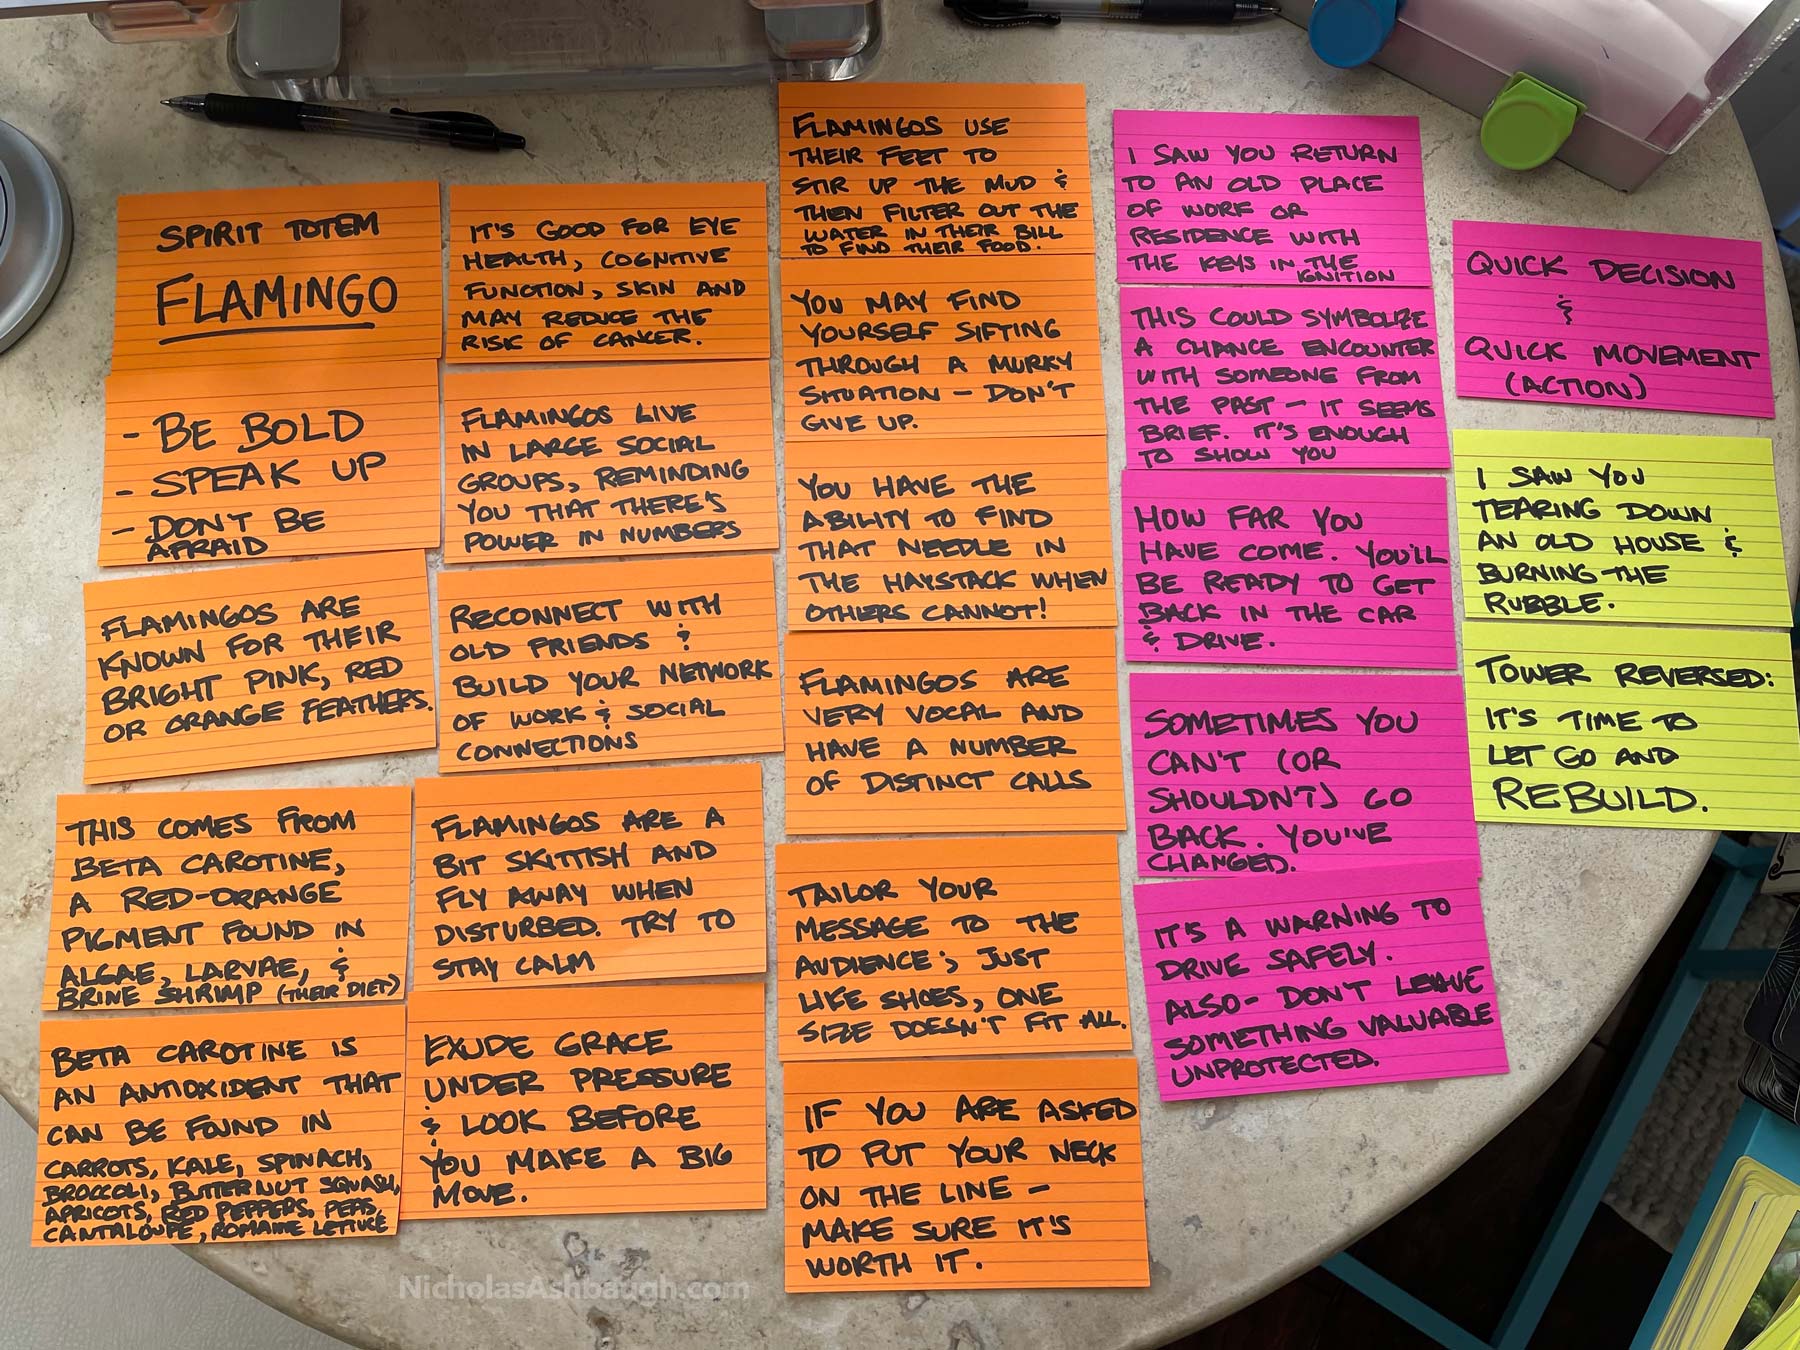 SPIRIT TOTEM
FLAMINGO
- BE BOLD
- SPEAK UP
- DON'T BE
AFRAID
FLAMINGOS ARE
KNOWN FOR THEIR
BRIGHT PINK, RED
OR ORANGE FEATHERS.
THIS COMES FROM
BETA CAROTINE,
A RED-ORANGE
PIGMENT FOUND IN
ALGAE, LARVAE, &
BRINE SHRIMP (THEIR DIET)
BETA CAROTINE IS
AN ANTIOXIDENT THAT
CAN BE FOUND IN
CARROTS, KALE, SPINACH,
BROCCOLI, BUTTERNUT SQUASH,
APRICOTS, RED PEPPERS, PEAS,
CANTALOUPE, ROMAINE LETTUCE
IT'S GOOD FOR EYE
HEALTH, COGNITIVE
FUNCTION, SKIN AND
MAY REDUCE THE
RISK OF CANCER.
FLAMINGOS LIVE
IN LARGE SOCIAL
GROUPS, REMINDING
YOU THAT THERE'S
POWER IN NUMBERS
RECONNECT WITH
OLD FRIENDS &
BUILD YOUR NETWORK
OF WORK & SOCIAL
CONNECTIONS
FLAMINGOS ARE A
BIT SKITTISH AND
FLY AWAY WHEN
DISTURBED. TRY TO
STAY CALM
EXUDE GRACE
UNDER PRESSURE
& LOOK BEFORE
YOU MAKE A BIG
MOVE.
FLAMINGOS USE
THEIR FEET TO
STIR UP THE MUD &
THEN FILTER OUT THE
WATER IN THEIR BILL
TO FIND THEIR FOOD.
YOU MAY FIND
YOURSELF SIFTING
THROUGH A MURKY
SITUATION - DON'T
GIVE UP.
YOU HAVE THE
ABILITY TO FIND
THAT NEEDLE IN
THE HAYSTACK WHEN
OTHERS CANNOT!
FLAMINGOS ARE
VERY VOCAL AND
HAVE A NUMBER
OF DISTINCT CALLS
TAILOR YOUR
MESSAGE TO THE
AUDIENCE; JUST
LIKE SHOES, ONE
SIZE DOESN'T FIT ALL.
IF YOU ARE ASKED
TO PUT YOUR NECK
ON THE LINE -
MAKE SURE IT'S
WORTH IT.
I SAW YOU RETURN
TO AN OLD PLACE
OF WORK OR
RESIDENCE WITH
THE KEYS IN THE
IGNITION
THIS COULD SYMBOLIZE
A CHANCE ENCOUNTER
WITH SOMEONE FROM
THE PAST - IT SEEMS
BRIEF. IT'S ENOUGH
TO SHOW YOU
HOW FAR YOU
HAVE COME. YOU'LL
BE READY TO GET
BACK IN THE CAR
& DRIVE.
SOMETIMES YOU
CAN'T (OR
SHOULDN'T) GO
BACK. YOU'VE
CHANGED.
IT'S A WARNING TO
DRIVE SAFELY.
ALSO - DON'T LEAVE
SOMETHING VALUABLE
UNPROTECTED.
QUICK DECISION
&
QUICK MOVEMENT
(ACTION)
I SAW YOU
TEARING DOWN
AN OLD HOUSE &
BURNING THE
RUBBLE.
TOWER REVERSED:
IT'S TIME TO
LET GO AND
REBUILD.
NicholasAshbaugh.com